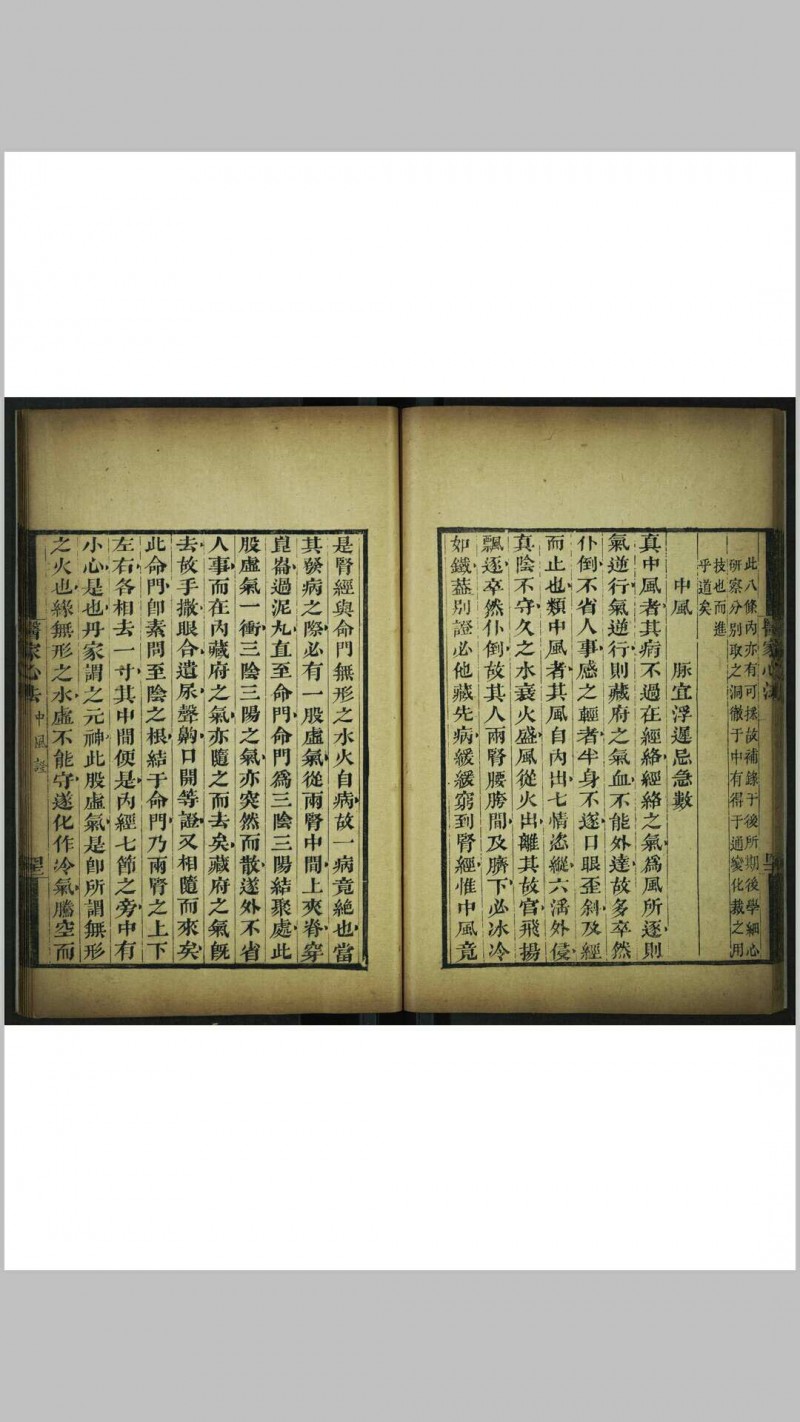 此八條內亦有可採故補錄于後所期後學細心
研察分別取之洞徹于中有得于通變化裁之用
技也而進
乎道矣
中風　脉宜浮遲忌急數
真中風者其病不過在經絡經絡之氣為風所逐則
氣逆行氣逆行則藏府之氣血不能外達故多卒然
仆倒不省人事感之輕者半身不遂口眼歪斜及經
而止也類中風者其風自內出七情恣縱六滛外侵
真陰不守久之水衰火盛風從火出離其故官飛揚
飄逐卒然仆倒故其人兩腎腰胯間及臍下必冰冷
如鐵葢別證必他藏先病緩緩窮到腎經惟中風竟
是腎經與命門無形之水火自病故一病竟絶也當
其發病之際必有一股虛氣從兩腎中間上夾脊穿
崑崙過泥丸直至命門命門為三陰三陽結聚處此
股虛氣一衝三陰三陽之氣亦突然而散遂外不省
人事而在內藏府之氣亦隨之而去矣藏府之氣旣
去故手撒眼合遺尿聲齁口開等證又相隨而來矣
此命門卽素問至陰之根結于命門乃兩腎之上下
左右各相去一寸其中間便是內經七節之旁中有
小心是也丹家謂之元神此股虛氣是卽所謂無形
之火也緣無形之水虛不能守遂化作冷氣騰空而
醫家心法
中風證